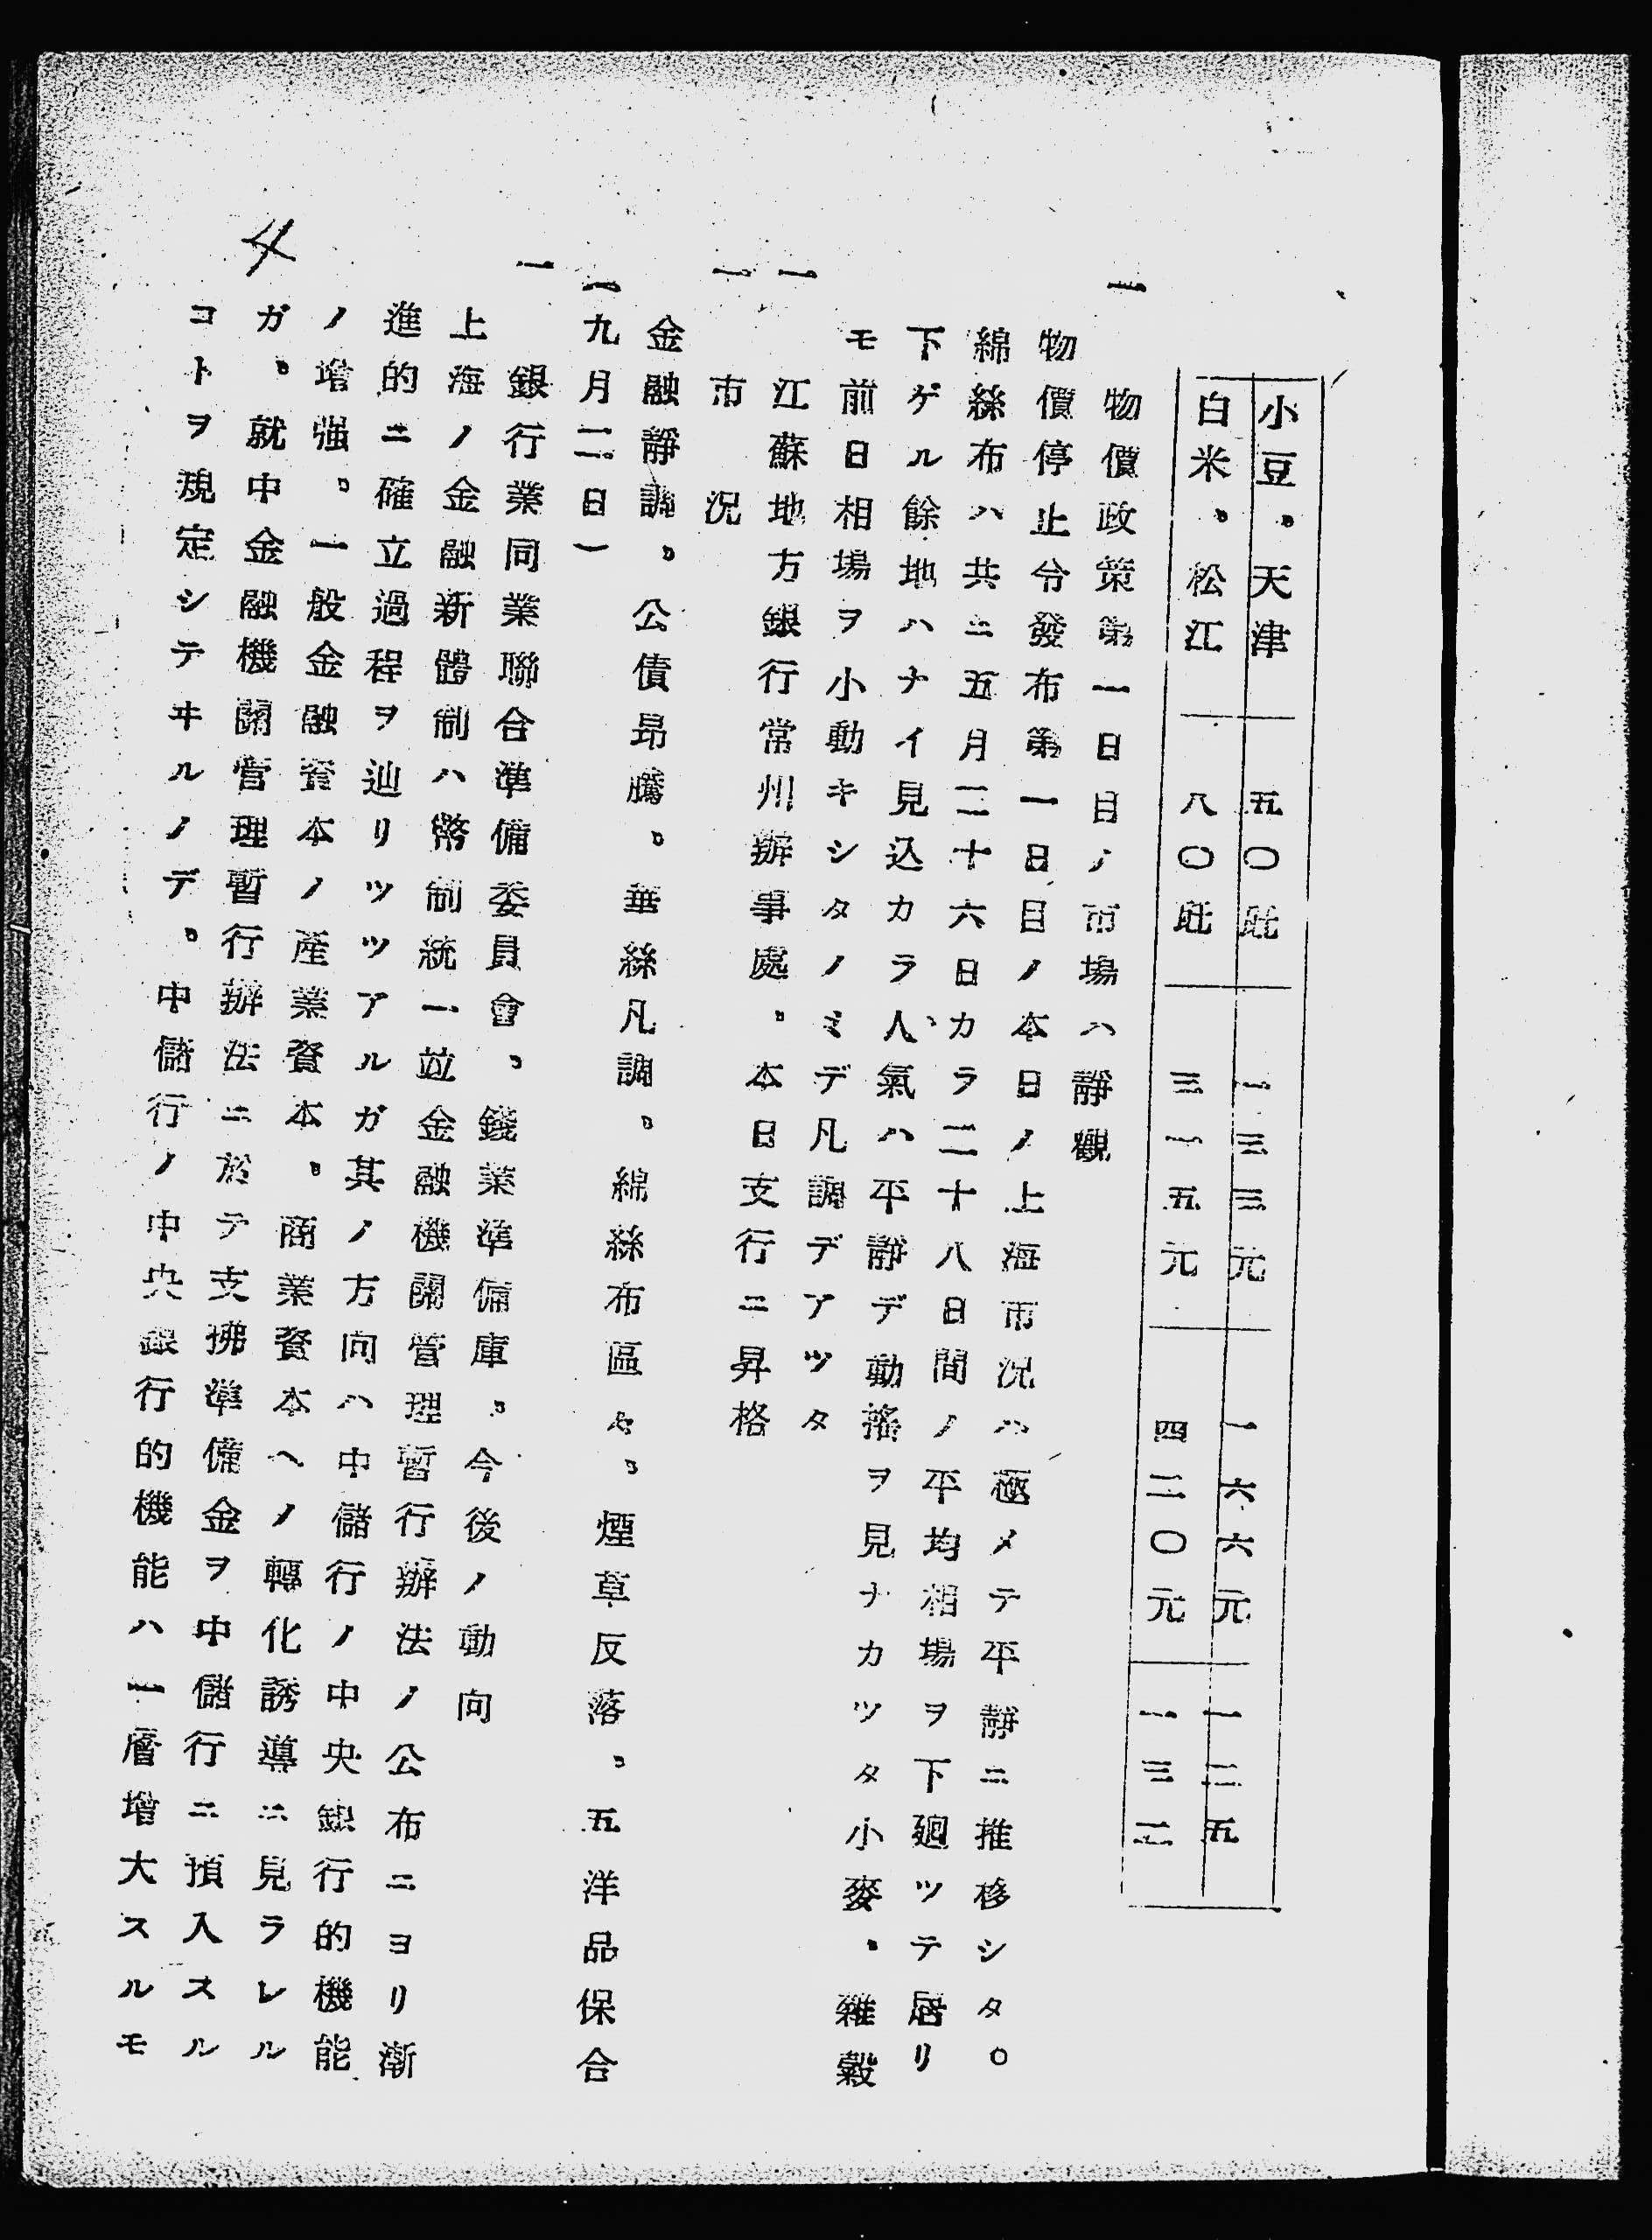 小豆、天津 五〇瓩 一三三元 一六六元 一二五
白米、松江 八〇瓩 三一五元 四二〇元 一三二
一 物價政策第一日目ノ市場ハ靜觀
物價停止令發布第一日目ノ本日ノ上海市況ハ極メテ平靜ニ推移シタ。
綿絲布ハ共ニ五月二十六日カラ二十八日間ノ平均相場ヲ下廻ツテ居リ
下ゲル餘地ハナイ見込カラ人氣ハ平靜デ動搖ヲ見ナカツタ小麥、雜穀
モ前日相場ヲ小動キシタノミデ凡調デアツタ
一 江蘇地方銀行常州辦事處、本日支行ニ昇格
一 市況
金融靜調、公債昻騰、華絲凡調、綿絲布區々、煙草反落、五洋品保合
(九月二日)
一 銀行業同業聯合準備委員會、錢業準備庫、今後ノ動向
上海ノ金融新體制ハ幣制統一竝金融機關管理暫行辦法ノ公布ニヨリ漸
進的ニ確立過程ヲ辿リツツアルガ其ノ方向ハ中儲行ノ中央銀行的機能
ノ增强、一般金融資本ノ產業資本、商業資本ヘノ轉化誘導ニ見ラレル
ガ、就中金融機關管理暫行辦法ニ於テ支拂準備金ヲ中儲行ニ預入スル
コトヲ規定シテヰルノデ、中儲行ノ中央銀行的機能ハ一層增大スルモ
4